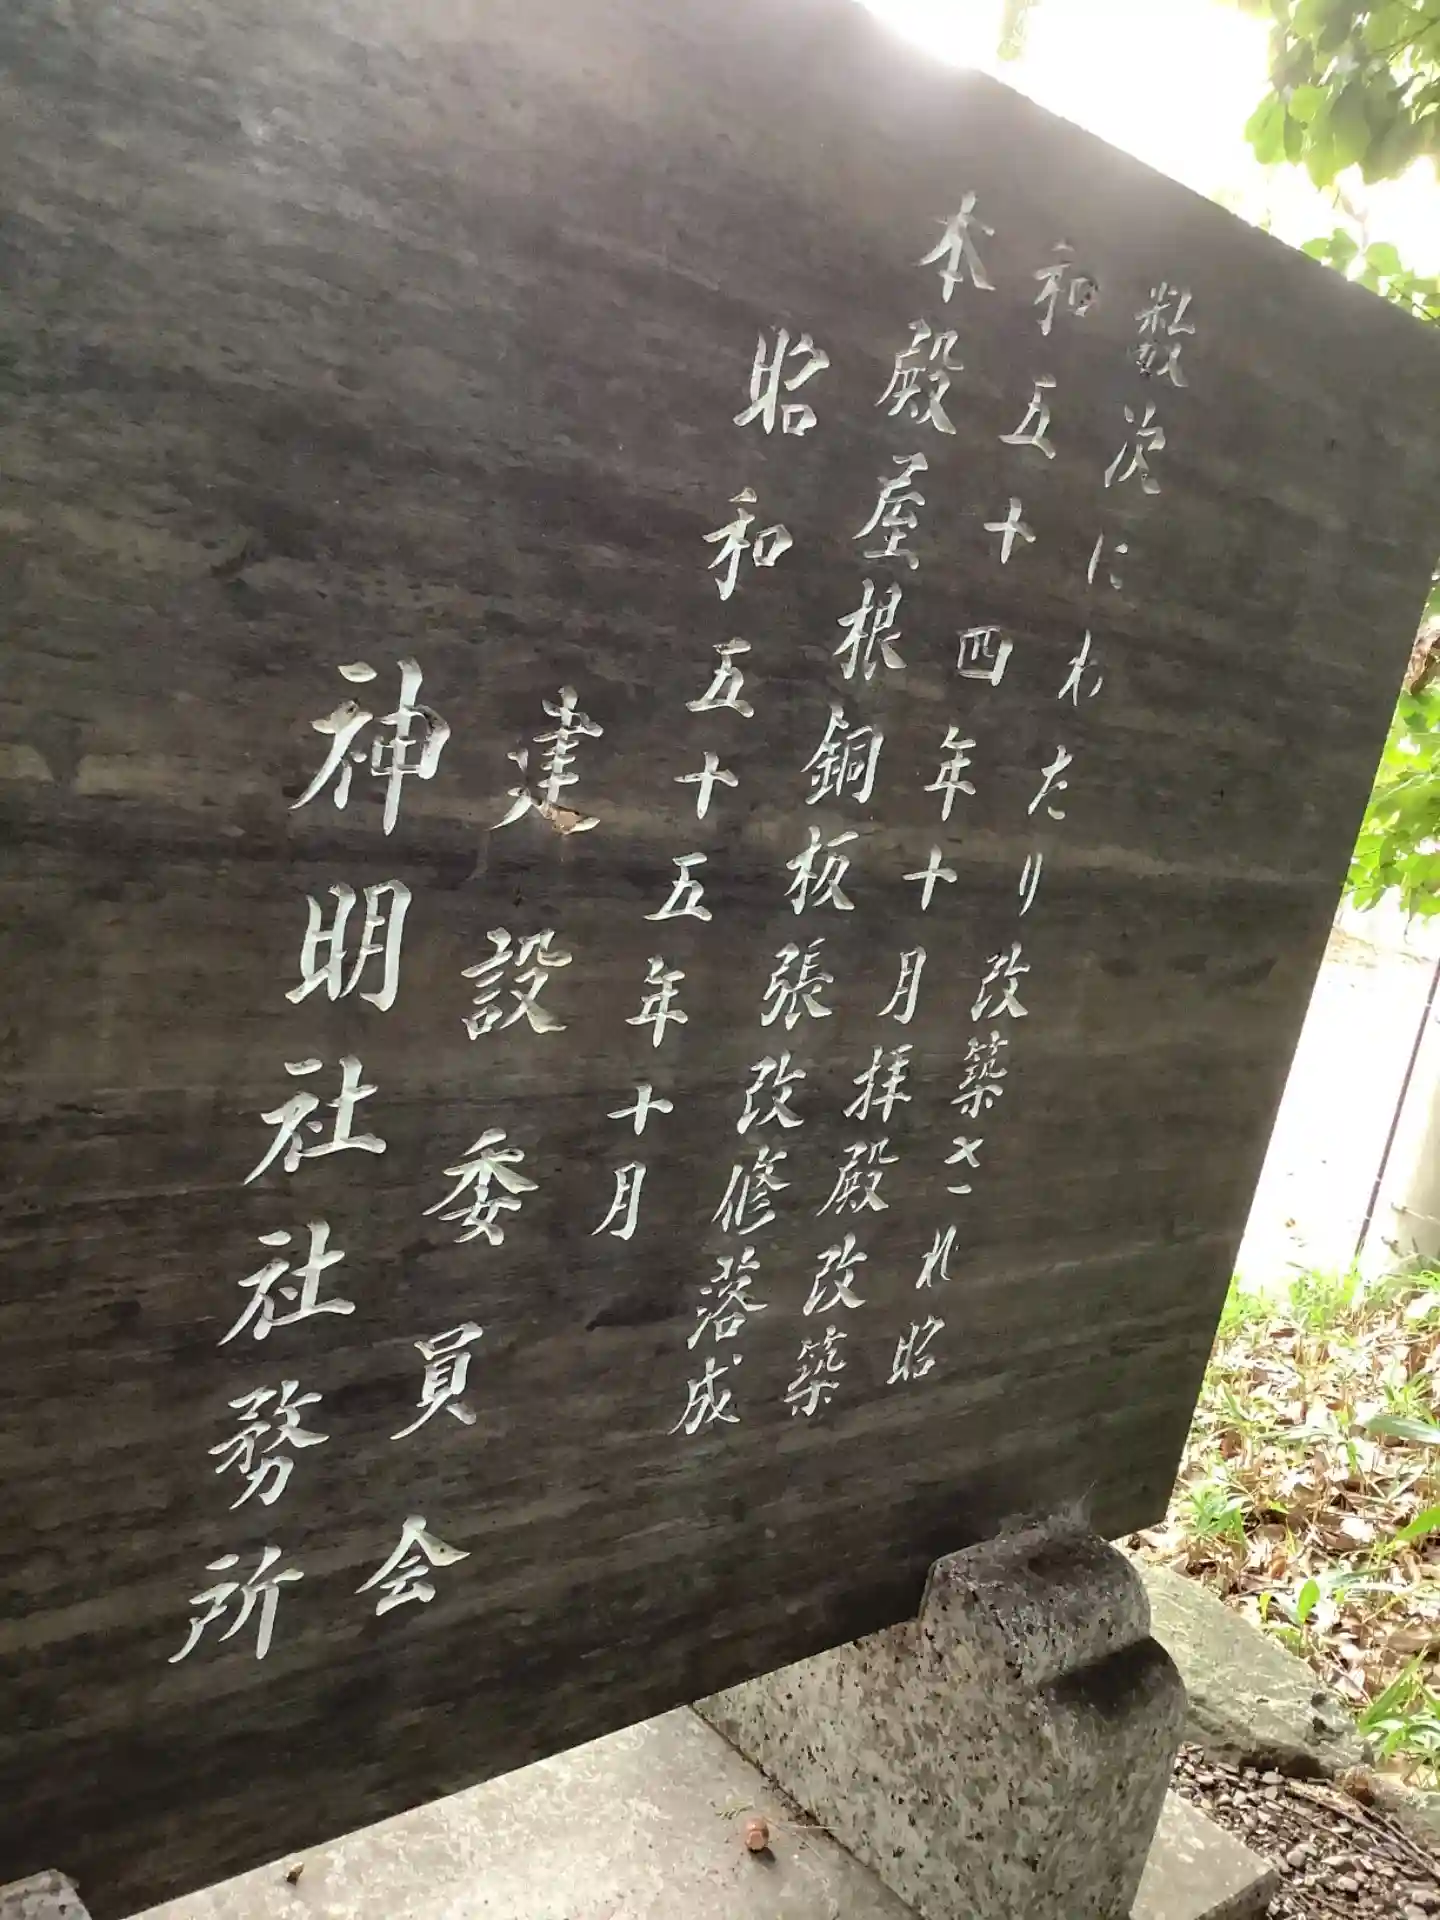 数次にわたり改築され昭
和五十四年十月拝殿改築
本殿屋根銅板張改修落成
昭和五十五年十月
建設委員会
神明社社務所